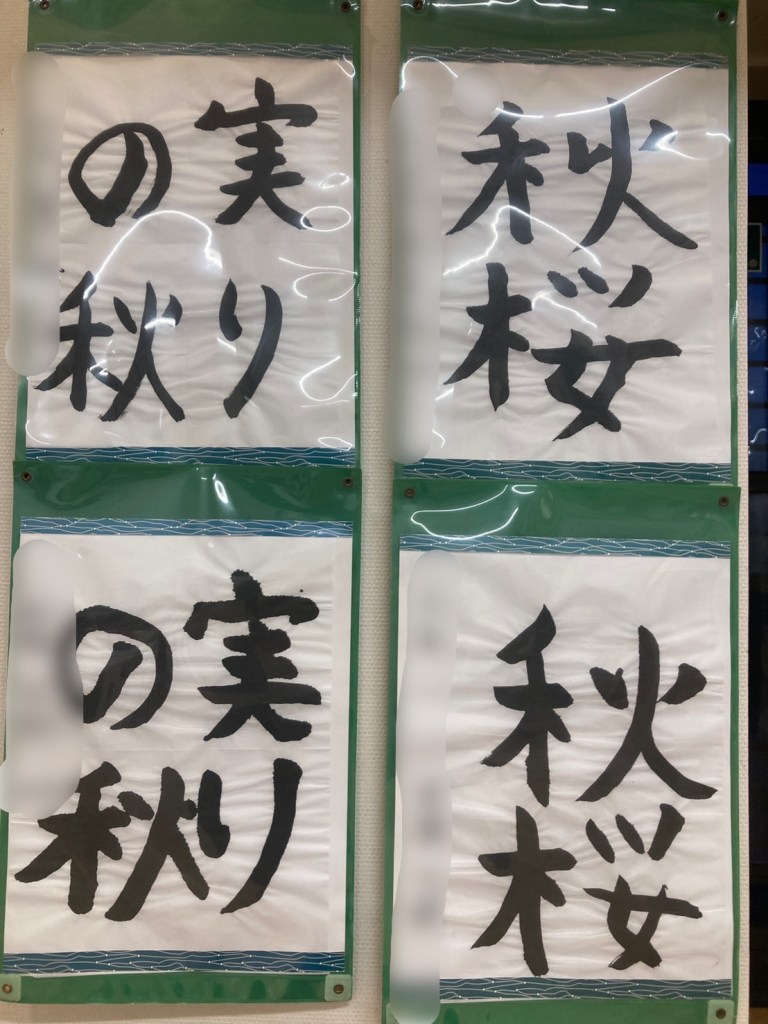 実り
の秋
秋桜
実り
の秋
秋桜